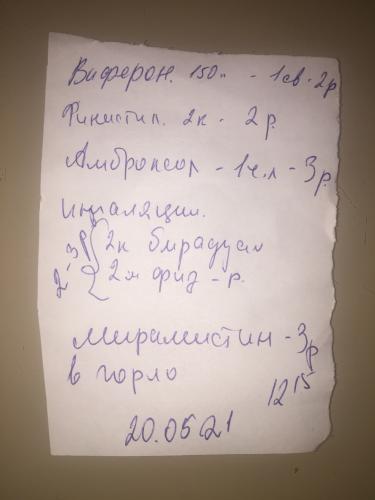 Виферон. 150 - 1св - 2р
Финистил. 2к - 2р.
Амброксол - 1ч.л - 3р.
ингаляции.
2-3р { 2к бирадуал
2м физ - р.
Мирамистин - 3р
в горло
12 15
20.05 21